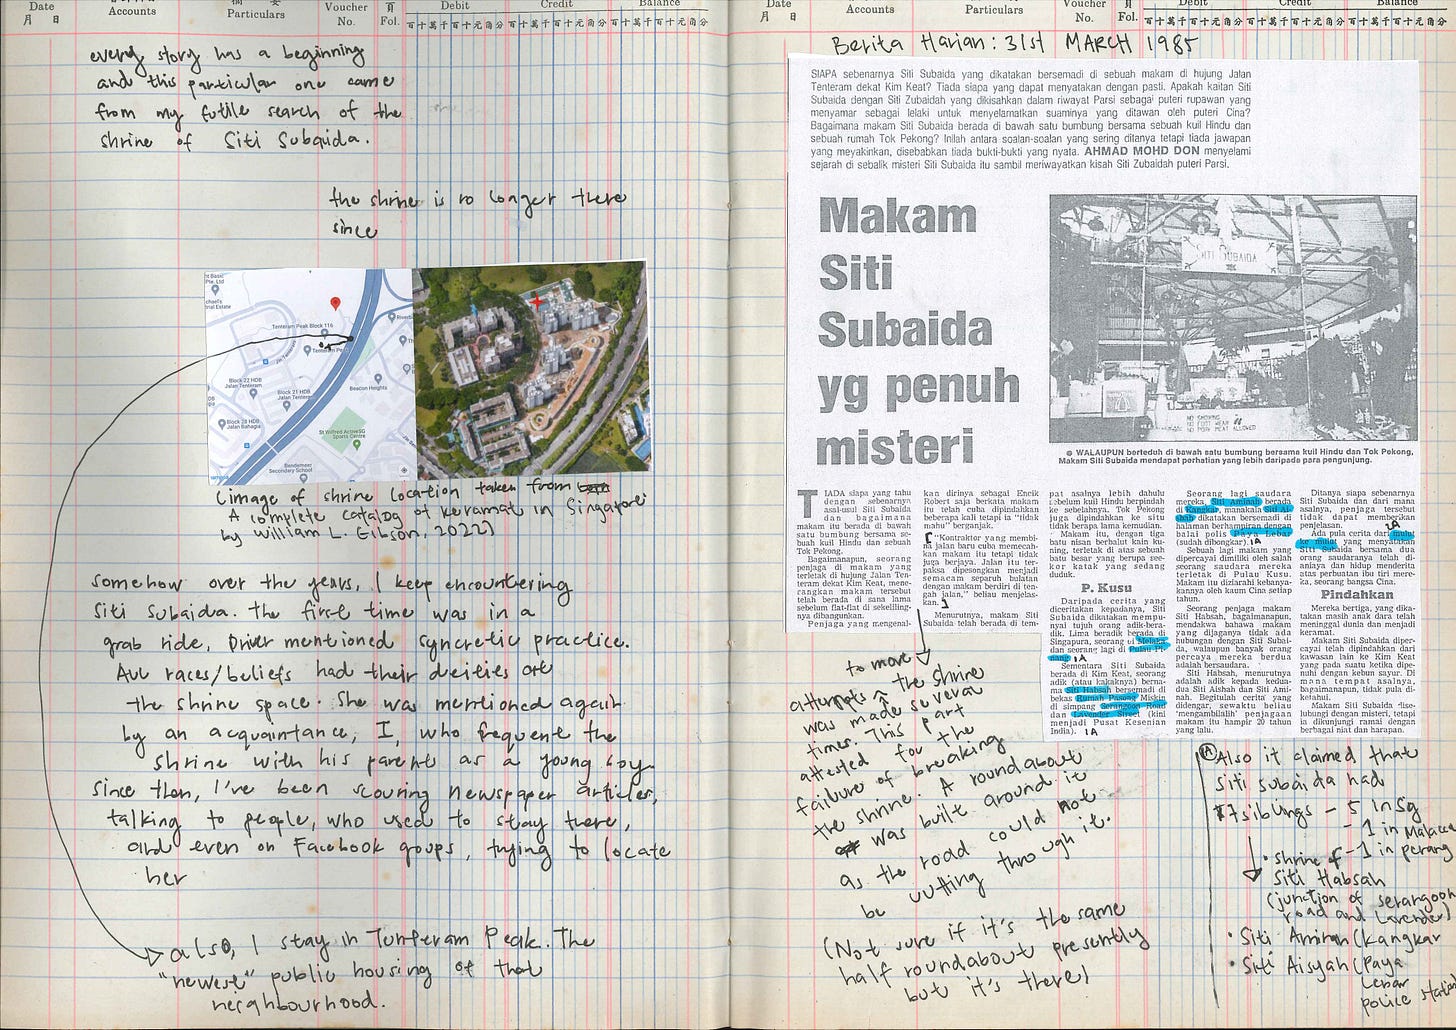 Date
月 日
Accounts
Particulars
Voucher No.
頁 Fol.
Debit
百十萬千百十元角分
Credit
百十萬千百十元角分
Balance
百十萬千百十元角分
every story has a beginning
and this particular one came
from my futile search of the
shrine of Siti Subaida.
the shrine is no longer there
since
Tenteram Peak Block 116
Block 22 HDB
Jalan Tenteram
Block 21 HDB
Jalan Tenteram
Beacon Heights
Block 28 HDB
Jalan Bahagia
St Wilfred ActiveSG
Sports Centre
Bendemeer
Secondary School
(image of shrine location taken from
A complete catalog of keramat in Singapore
by William L. Gibson, 2022)
somehow over the years, I keep encountering
Siti Subaida. the first time was in a
grab ride, Driver mentioned syncretic practice.
All races/beliefs had their deities at
the shrine space. She was mentioned again
by an acquaintance, I, who frequent the
shrine with his parents as a young boy.
since then, I've been scouring newspaper articles,
talking to people, who used to stay there,
and even on Facebook groups, trying to locate
her
also, I stay in Tenteram Peak. The
"newest" public housing of that
neighbourhood.
Date
月 日
Accounts
Particulars
Voucher No.
頁 Fol.
Debit
百十萬千百十元角分
Credit
百十萬千百十元角分
Balance
百十萬千百十元角分
Berita Harian: 31st MARCH 1985
SIAPA sebenarnya Siti Subaida yang dikatakan bersemadi di sebuah makam di hujung Jalan
Tenteram dekat Kim Keat? Tiada siapa yang dapat menyatakan dengan pasti. Apakah kaitan Siti
Subaida dengan Siti Zubaidah yang dikisahkan dalam riwayat Parsi sebagai puteri rupawan yang
menyamar sebagai lelaki untuk menyelamatkan suaminya yang ditawan oleh puteri Cina?
Bagaimana makam Siti Subaida berada di bawah satu bumbung bersama sebuah kuil Hindu dan
sebuah rumah Tok Pekong? Inilah antara soalan-soalan yang sering ditanya tetapi tiada jawapan
yang meyakinkan, disebabkan tiada bukti-bukti yang nyata. AHMAD MOHD DON menyelami
sejarah di sebalik misteri Siti Subaida itu sambil meriwayatkan kisah Siti Zubaidah puteri Parsi.
Makam
Siti
Subaida
yg penuh
misteri
SITI SUBAIDA
NO SMOKING
NO FOOT WEAR
NO PORK MEAT ALLOWED
● WALAUPUN berteduh di bawah satu bumbung bersama kuil Hindu dan Tok Pekong,
Makam Siti Subaida mendapat perhatian yang lebih daripada para pengunjung.
TIADA siapa yang tahu
dengan sebenarnya
asal-usul Siti Subaida
dan bagaimana
makam itu berada di bawah
satu bumbung bersama se-
buah kuil Hindu dan sebuah
Tok Pekong.
Bagaimanapun, seorang
penjaga di makam yang
terletak di hujung Jalan Ten-
teram dekat Kim Keat, mene-
rangkan makam tersebut
telah berada di sana lama
sebelum flat-flat di sekeliling-
nya dibangunkan.
Penjaga yang mengenal-
kan dirinya sebagai Encik
Robert saja berkata makam
itu telah cuba dipindahkan
beberapa kali tetapi ia "tidak
mahu" berganjak.
"Kontraktor yang membi-
na jalan baru cuba memecah-
kan makam itu tetapi tidak
juga berjaya. Jalan itu ter-
paksa dipesongkan menjadi
semacam separuh bulatan
dengan makam berdiri di ten-
gah jalan," beliau menjelas-
kan.
Menurutnya, makam Siti
Subaida telah berada di tem-
pat asalnya lebih dahulu
sebelum kuil Hindu berpindah
ke sebelahnya. Tok Pekong
juga dipindahkan ke situ
tidak berapa lama kemudian.
Makam itu, dengan tiga
batu nisan berbalut kain ku-
ning, terletak di atas sebuah
batu besar yang berupa see-
kor katak yang sedang
duduk.
P. Kusu
Daripada cerita yang
diceritakan kepadanya, Siti
Subaida dikatakan mempu-
nyai tujuh orang adik-bera-
dik. Lima beradik berada di
Singapura, seorang di Melaka
dan seorang lagi di Pulau Pi-
nang. 1A
Sementara Siti Subaida
berada di Kim Keat, seorang
adik (atau kakaknya) berna-
ma Siti Habsah bersemadi di
bekas Rumah Pasong Miskin
di simpang Serangoon Road
dan Lavender Street (kini
menjadi Pusat Kesenian
India). 1A
Seorang lagi saudara
mereka, Siti Aminah berada
di Kangkar, manakala Siti Ai-
shah dikatakan bersemadi di
halaman berhampiran dengan
balai polis Paya Lebar
(sudah dibongkar). 1A
Sebuah lagi makam yang
dipercayai dimiliki oleh salah
seorang saudara mereka
terletak di Pulau Kusu.
Makam itu diziarahi kebanya-
kannya oleh kaum Cina setiap
tahun.
Seorang penjaga makam
Siti Habsah, bagaimanapun,
mendakwa bahawa makam
yang dijaganya tidak ada
hubungan dengan Siti Subai-
da, walaupun banyak orang
percaya mereka berdua
adalah bersaudara.
Siti Habsah, menurutnya
adalah adik kepada kedua-
dua Siti Aishah dan Siti Ami-
nah. Begitulah cerita yang
didengar, sewaktu beliau
'mengambilalih' penjagaan
makam itu hampir 20 tahun
yang lalu.
Ditanya siapa sebenarnya
Siti Subaida dan dari mana
asalnya, penjaga tersebut
tidak dapat memberikan
penjelasan. 2A
Ada pula cerita dari mulut
ke mulut yang menyatakan
Siti Subaida bersama dua
orang saudaranya telah di-
aniaya dan hidup menderita
atas perbuatan ibu tiri mere-
ka, seorang bangsa Cina.
Pindahkan
Mereka bertiga, yang dika-
takan masih anak dara telah
meninggal dunia dan menjadi
keramat.
Makam Siti Subaida diper-
cayai telah dipindahkan dari
kawasan lain ke Kim Keat
yang pada suatu ketika dipe-
nuhi dengan kebun sayur. Di
mana tempat asalnya,
bagaimanapun, tidak pula di-
ketahui.
Makam Siti Subaida 'dise-
lubungi dengan misteri, tetapi
ia dikunjungi ramai dengan
berbagai niat dan harapan.
to move
attempts ^ the shrine
was made several
times. This part
attested for the
failure of breaking
the shrine. A roundabout
was built around it
as the road could not
be cutting through it.
(Not sure if it's the same
half roundabout presently
but it's there)
1A Also it claimed that
Siti subaida had
7 siblings - 5 in Sg
- 1 in Malacca
- 1 in penang
• shrine of
Siti Habsah
(junction of serangoon
road and Lavender)
• Siti Aminah (kangkar
• Siti Aisyah (Paya
Lebar
police station